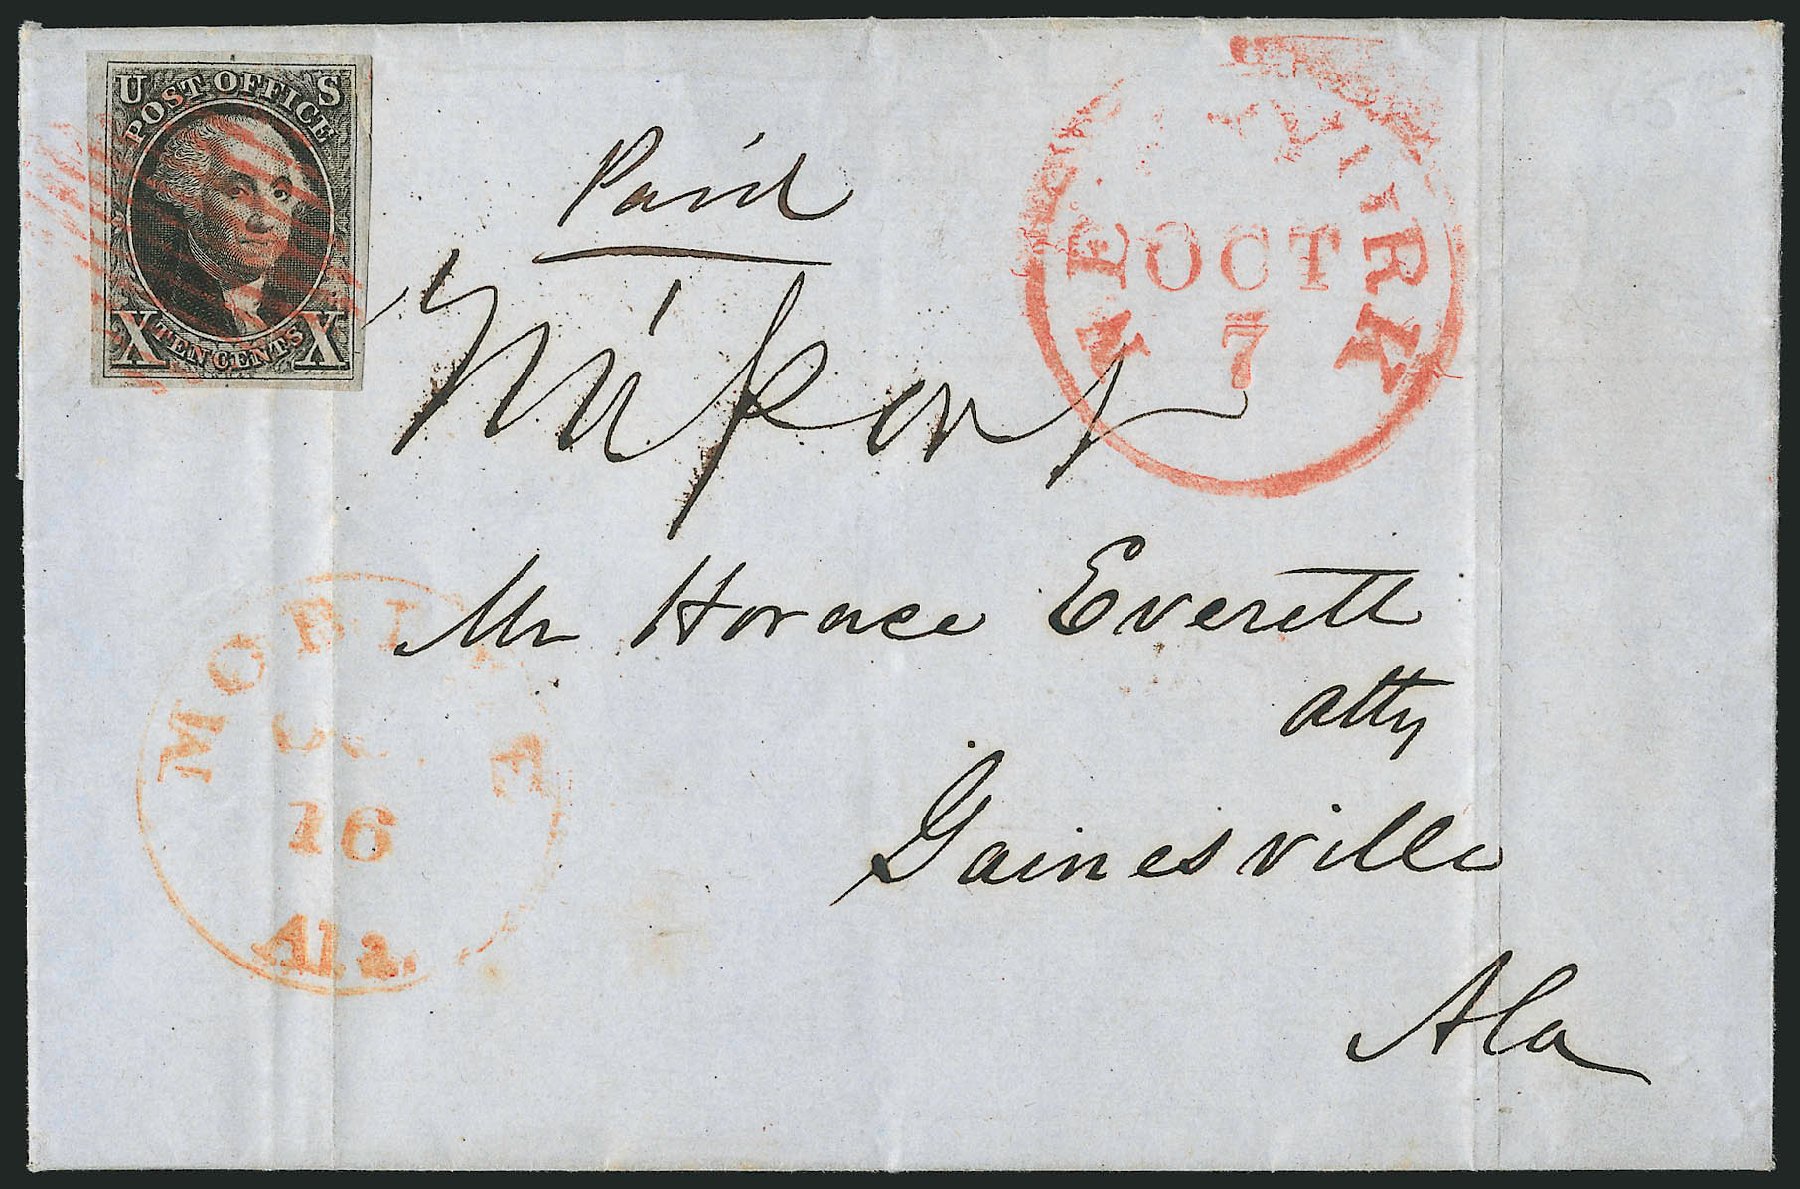 U S
POST OFFICE
X TEN CENTS X
Paid
NEW YORK
OCT
7
Mr Horace Everett
atty
Gainesville
Ala
MOBILE
16
Ala.